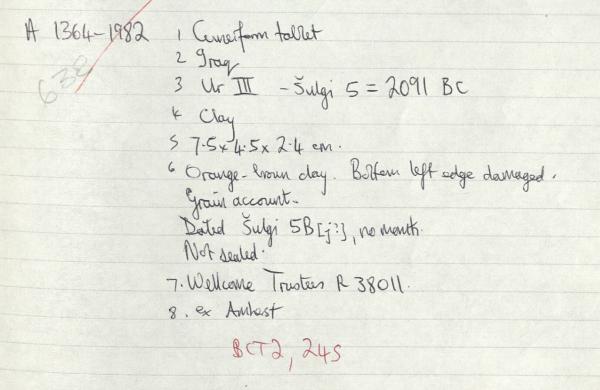 A 1364-1982 1 Cuneiform tablet
638
2 Iraq
3 Ur III - Šulgi 5 = 2091 BC
4 Clay
5 7.5 x 4.5 x 2.4 cm.
6 Orange-brown clay. Bottom left edge damaged.
Grain account.
Dated Šulgi 5B[j?], no month.
Not sealed.
7. Wellcome Trustees R 38011.
8. ex Amherst
BCT2, 245